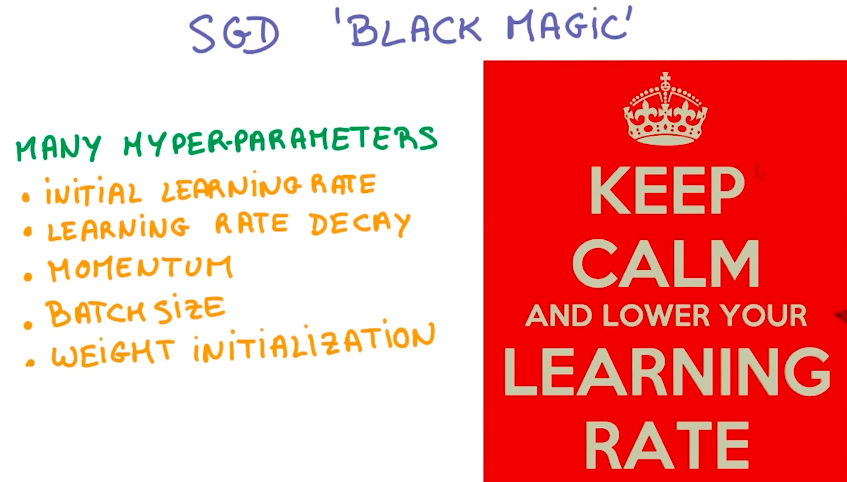 SGD 'BLACK MAGIC'
MANY HYPER-PARAMETERS
• INITIAL LEARNING RATE
• LEARNING RATE DECAY
• MOMENTUM
• BATCH SIZE
• WEIGHT INITIALIZATION
KEEP
CALM
AND LOWER YOUR
LEARNING
RATE